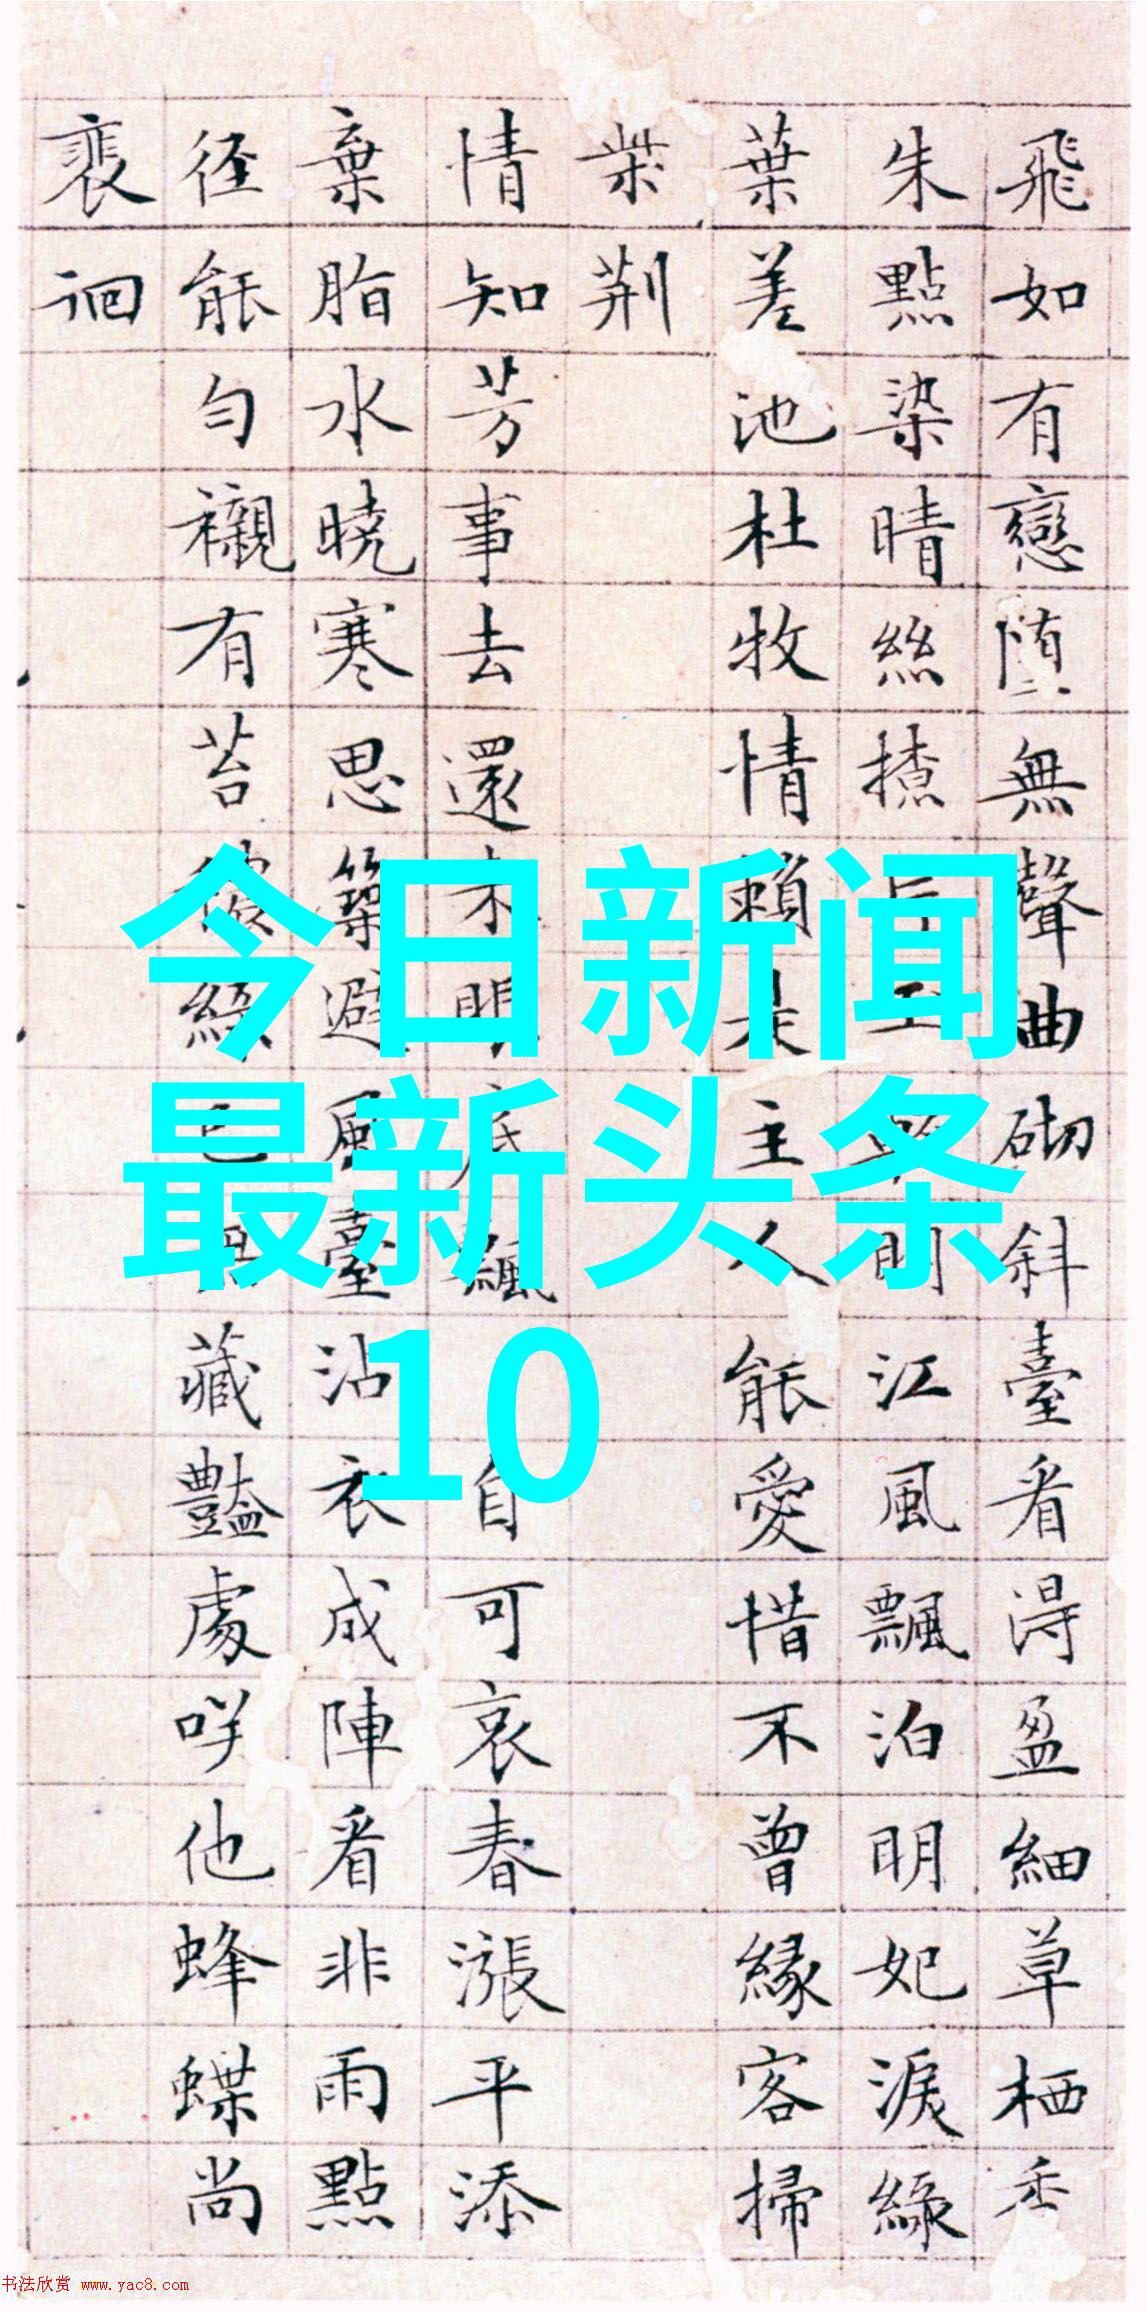 飛如有戀堕無聲曲砌斜臺看淂盈細草栖香
朱點染晴絲江風飄泊明妃淚綠
葉差池杜牧情賴是主人能愛惜不曾緣客掃
柴荆
情知芳事去還飄自可哀春漲平添
棄脂水曉寒思築避風臺沾衣成陣看非雨點
径能勻襯有苔藏豔處咲他蜂蝶尚
裵徊
今日新闻
最新头条
10
书法欣赏 www.yac8.com